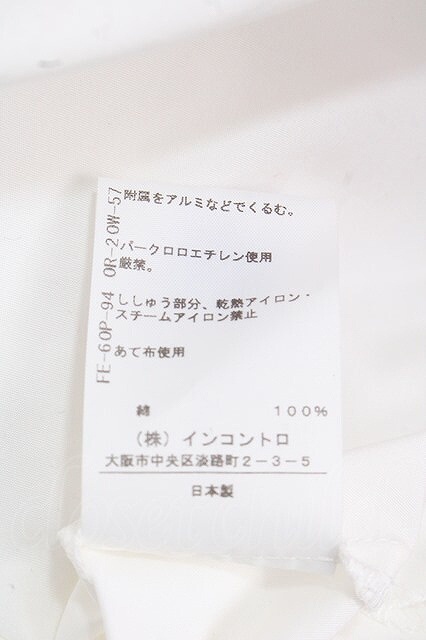 附属をアルミなどでくるむ。
パークロロエチレン使用
厳禁。
ししゅう部分、乾熱アイロン・
スチームアイロン禁止
あて布使用
綿 100%
(株)インコントロ
大阪市中央区淡路町2-3-5
日本製
FE-60P-94 OR-20W-57